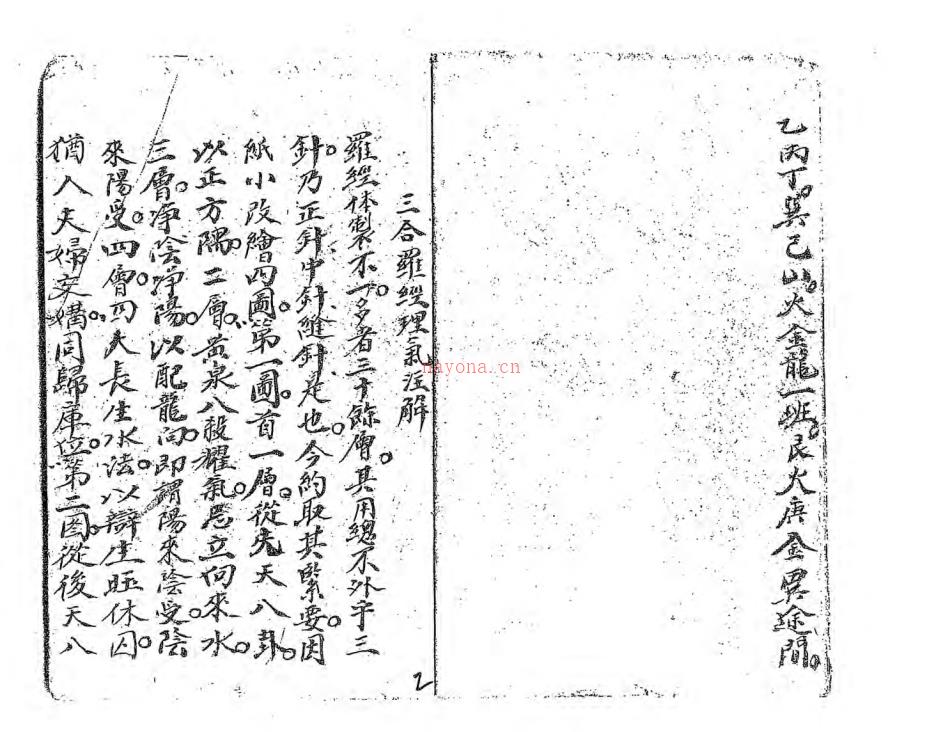 乙丙丁。巽巳山。火金龍一班。艮火庚金異途間。
三合羅經理氣注解
羅經体製不一。多者三十餘層。其用總不外乎三
針。乃正針中針縫針是也。今約取其緊要。因
紙小改繪四圖。第一圖。首一層。從先天八卦。
以正方隅。二層。黃泉八殺耀氣。忌立向來水。
三層。净陰净陽。以配龍向。即謂陽來陰受。陰
來陽受。四層。四大長生水法。以辯生旺休囚。
猶人夫婦交媾。同歸庫位。第二圖從後天八
2
nayona.cn